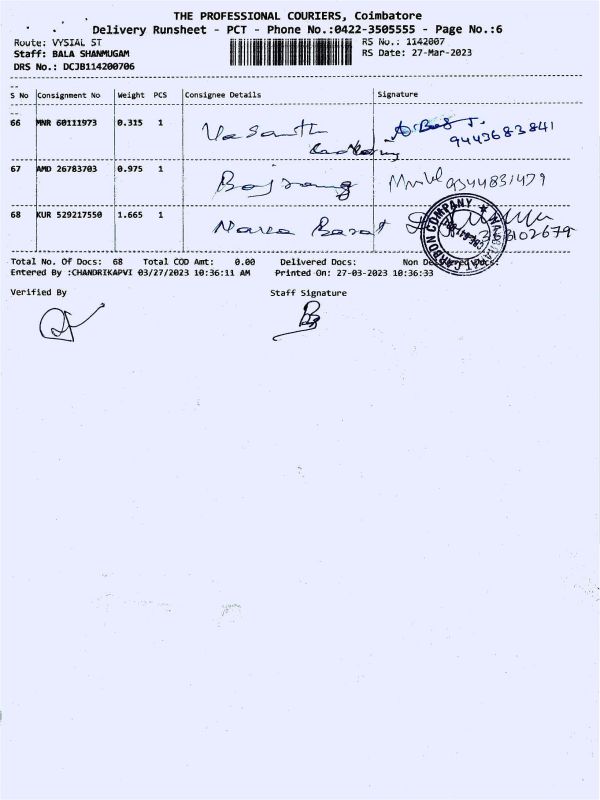 THE PROFESSIONAL COURIERS, Coimbatore
Delivery Runsheet - PCT - Phone No.:0422-3505555 - Page No.:6
Route: VYSIAL ST
RS No.: 1142007
Staff: BALA SHANMUGAM
RS Date: 27-Mar-2023
DRS No.: DCJB114200706
S No Consignment No Weight PCS Consignee Details Signature
66 MNR 60111973 0.315 1 Vasanth
9443683841
67 AMD 26783703 0.975 1 Bajrang 9344831479
68 KUR 529217550 1.665 1 Narea Barat
CARBON COMPANY
Total No. Of Docs: 68 Total COD Amt: 0.00 Delivered Docs: Non Delivered Docs:
Entered By :CHANDRIKAPVI 03/27/2023 10:36:11 AM Printed On: 27-03-2023 10:36:33
Verified By Staff Signature